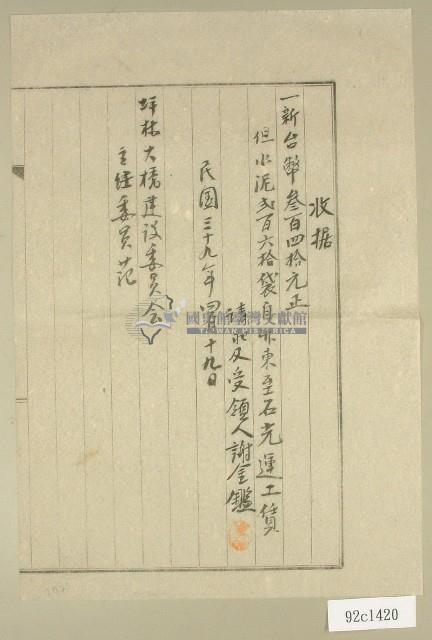 收据
一新台幣叁百四拾元正
但水泥弍百六拾袋自竹東至石光運工賃
請求及受領人謝金鑑
民國三十九年四月十九日
坪林大橋建設委員会
主任委員
國史館臺灣文獻館
TAIWAN HISTORICA
92c1420